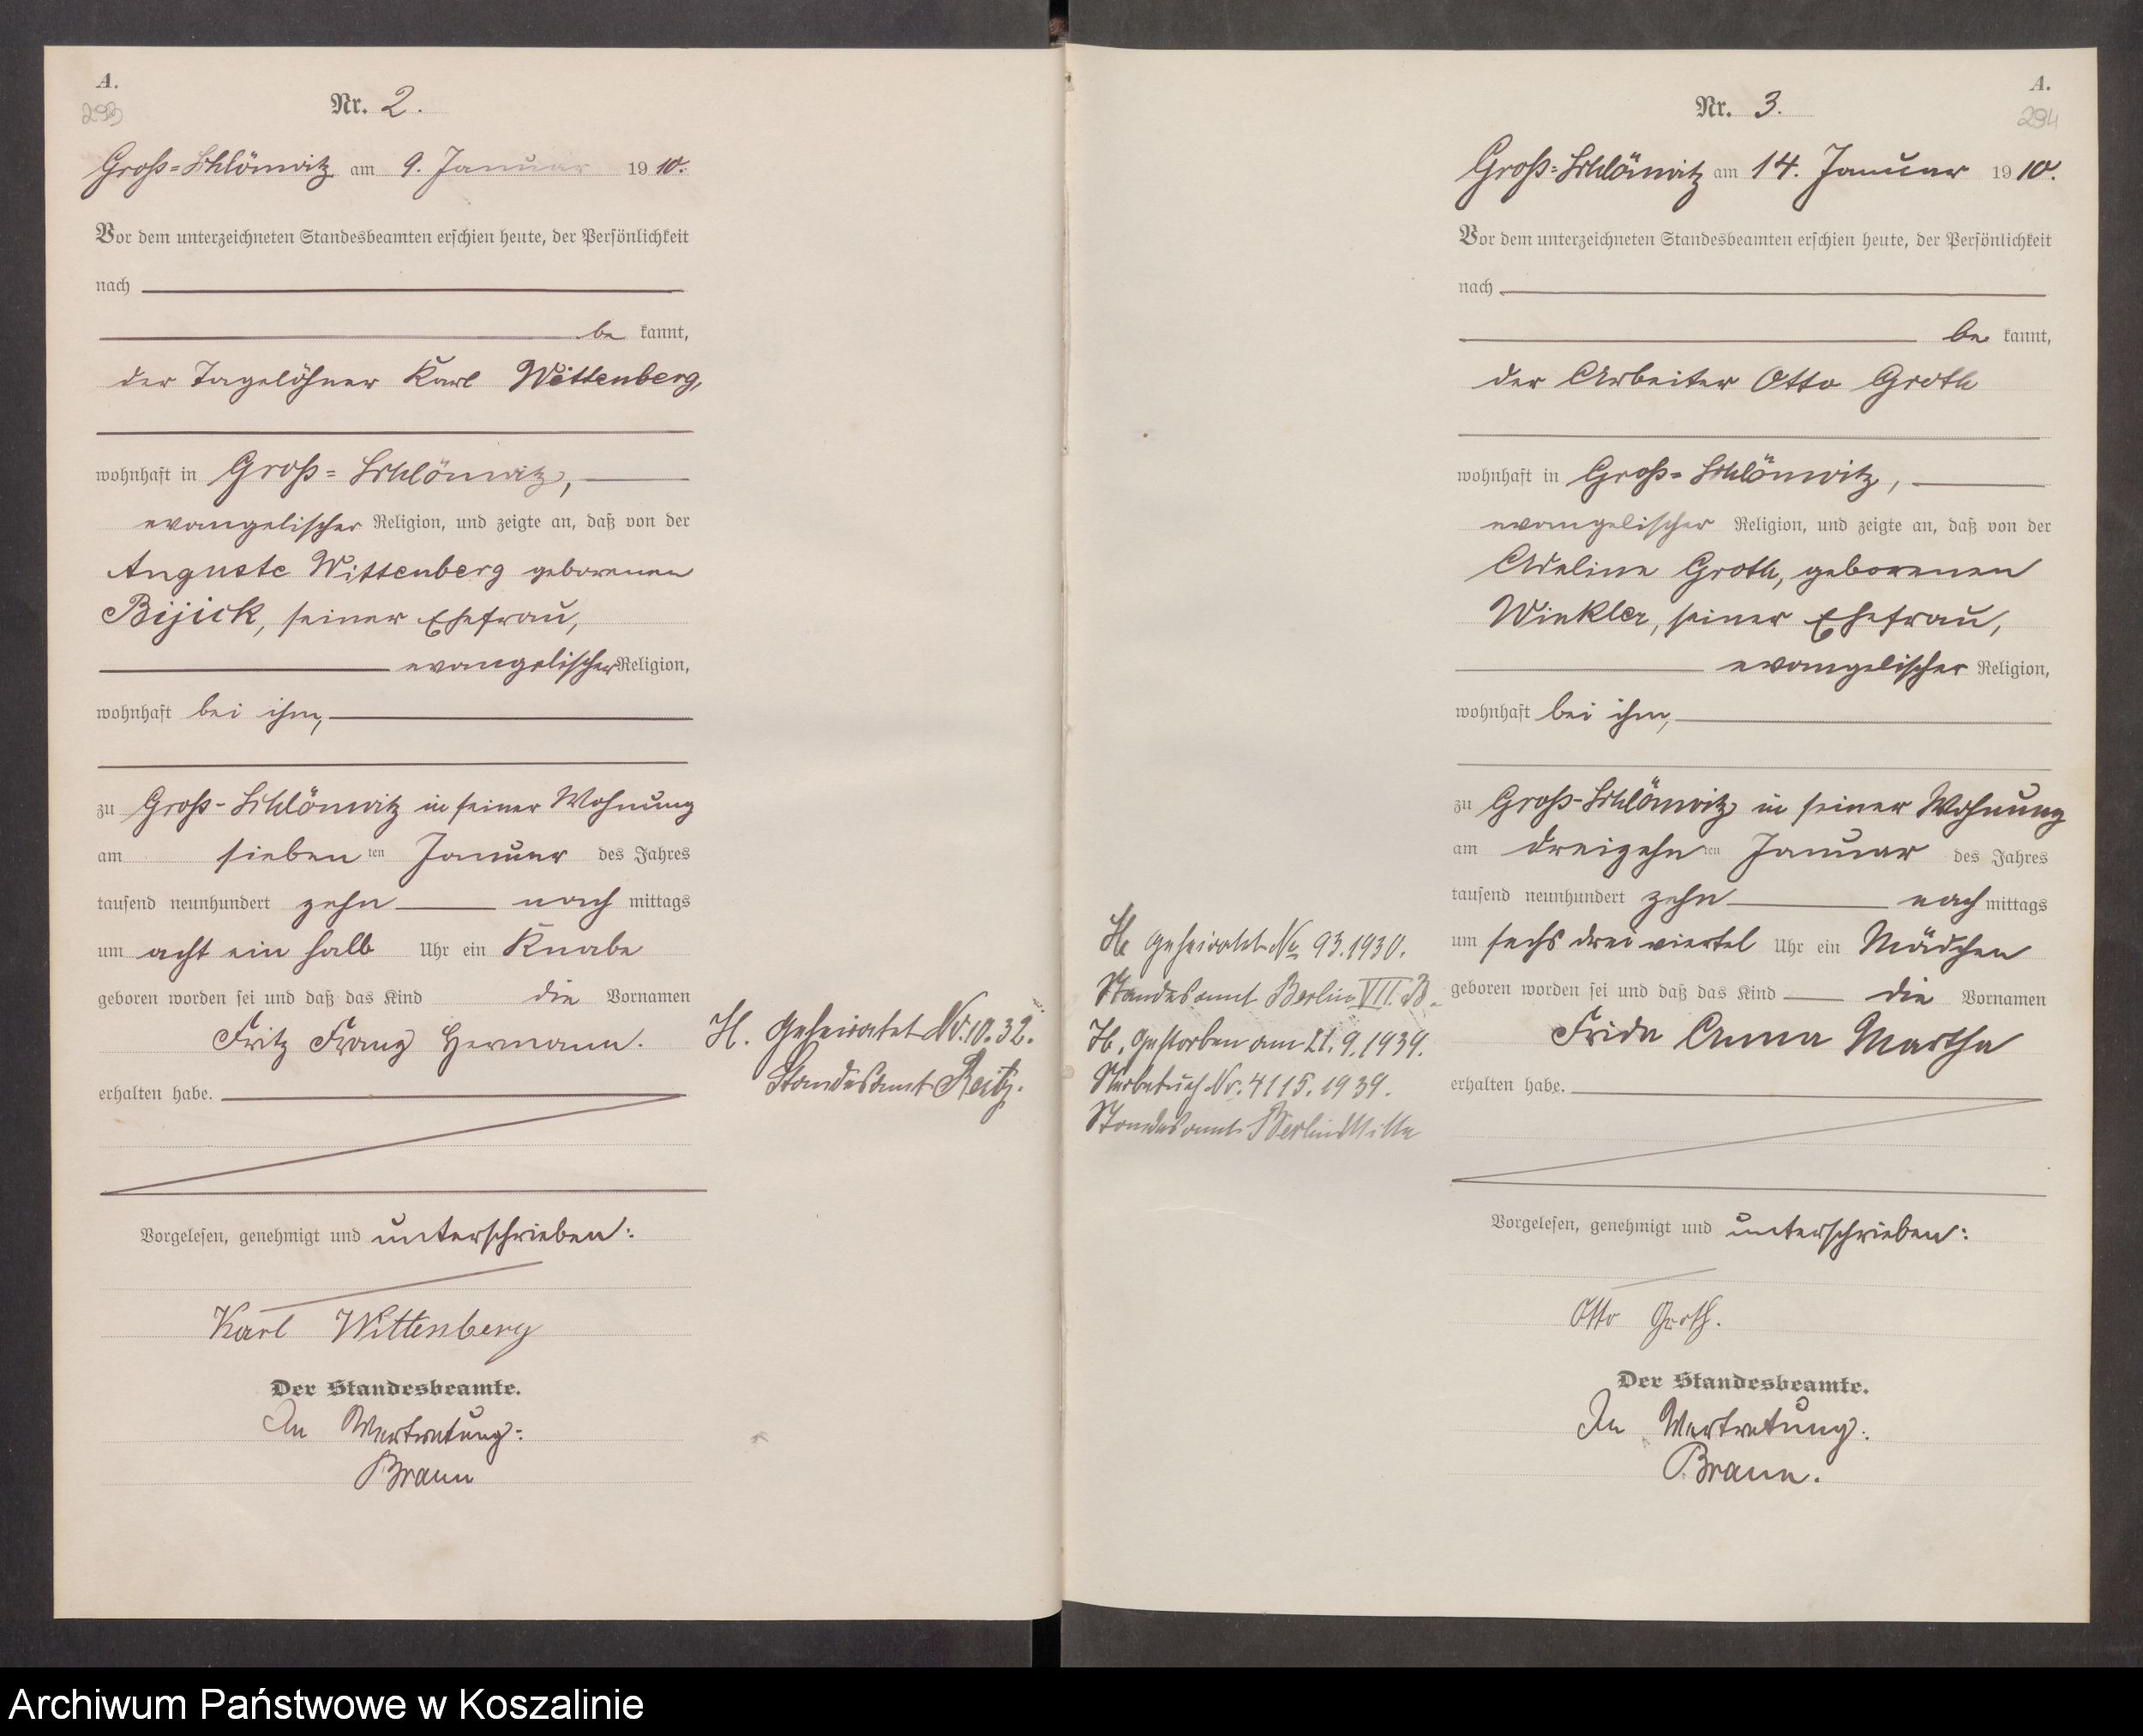 A.
293
Nr. 2.
Groß-Schlönwitz am 9. Januar 1910.
Vor dem unterzeichneten Standesbeamten erschien heute, der Persönlichkeit
nach
be kannt,
der Tagelöhner Karl Wittenberg,
wohnhaft in Groß-Schlönwitz,
evangelischer Religion, und zeigte an, daß von der
Auguste Wittenberg geborenen
Bijick, seiner Ehefrau,
evangelischer Religion,
wohnhaft bei ihm,
zu Groß-Schlönwitz in seiner Wohnung
am sieben ten Januar des Jahres
tausend neunhundert zehn nach mittags
um acht ein halb Uhr ein Knabe
geboren worden sei und daß das Kind die Vornamen
Fritz Franz Hermann.
erhalten habe.
Vorgelesen, genehmigt und unterschrieben:
Karl Wittenberg
Der Standesbeamte.
In Vertretung:
Braun
H. Geheiratet Nr. 10. 32.
Standesamt Beitz.
A.
294
Nr. 3.
Groß-Schlönwitz am 14. Januar 1910.
Vor dem unterzeichneten Standesbeamten erschien heute, der Persönlichkeit
nach
be kannt,
der Arbeiter Otto Groth
wohnhaft in Groß-Schlönwitz,
evangelischer Religion, und zeigte an, daß von der
Adeline Groth, geborenen
Winkler, seiner Ehefrau,
evangelischer Religion,
wohnhaft bei ihm,
zu Groß-Schlönwitz in seiner Wohnung
am dreizehn ten Januar des Jahres
tausend neunhundert zehn nach mittags
um sechs drei viertel Uhr ein Mädchen
geboren worden sei und daß das Kind die Vornamen
Frida Anna Martha
erhalten habe.
Vorgelesen, genehmigt und unterschrieben:
Otto Groth.
Der Standesbeamte.
In Vertretung:
Braun.
H. geheiratet Nr. 93. 1930.
Standesamt Berlin VII. B.
H. Gestorben am 21. 9. 1939.
Sterbebuch Nr. 4115. 1939.
Standesamt Berlin Mitte
Archiwum Państwowe w Koszalinie